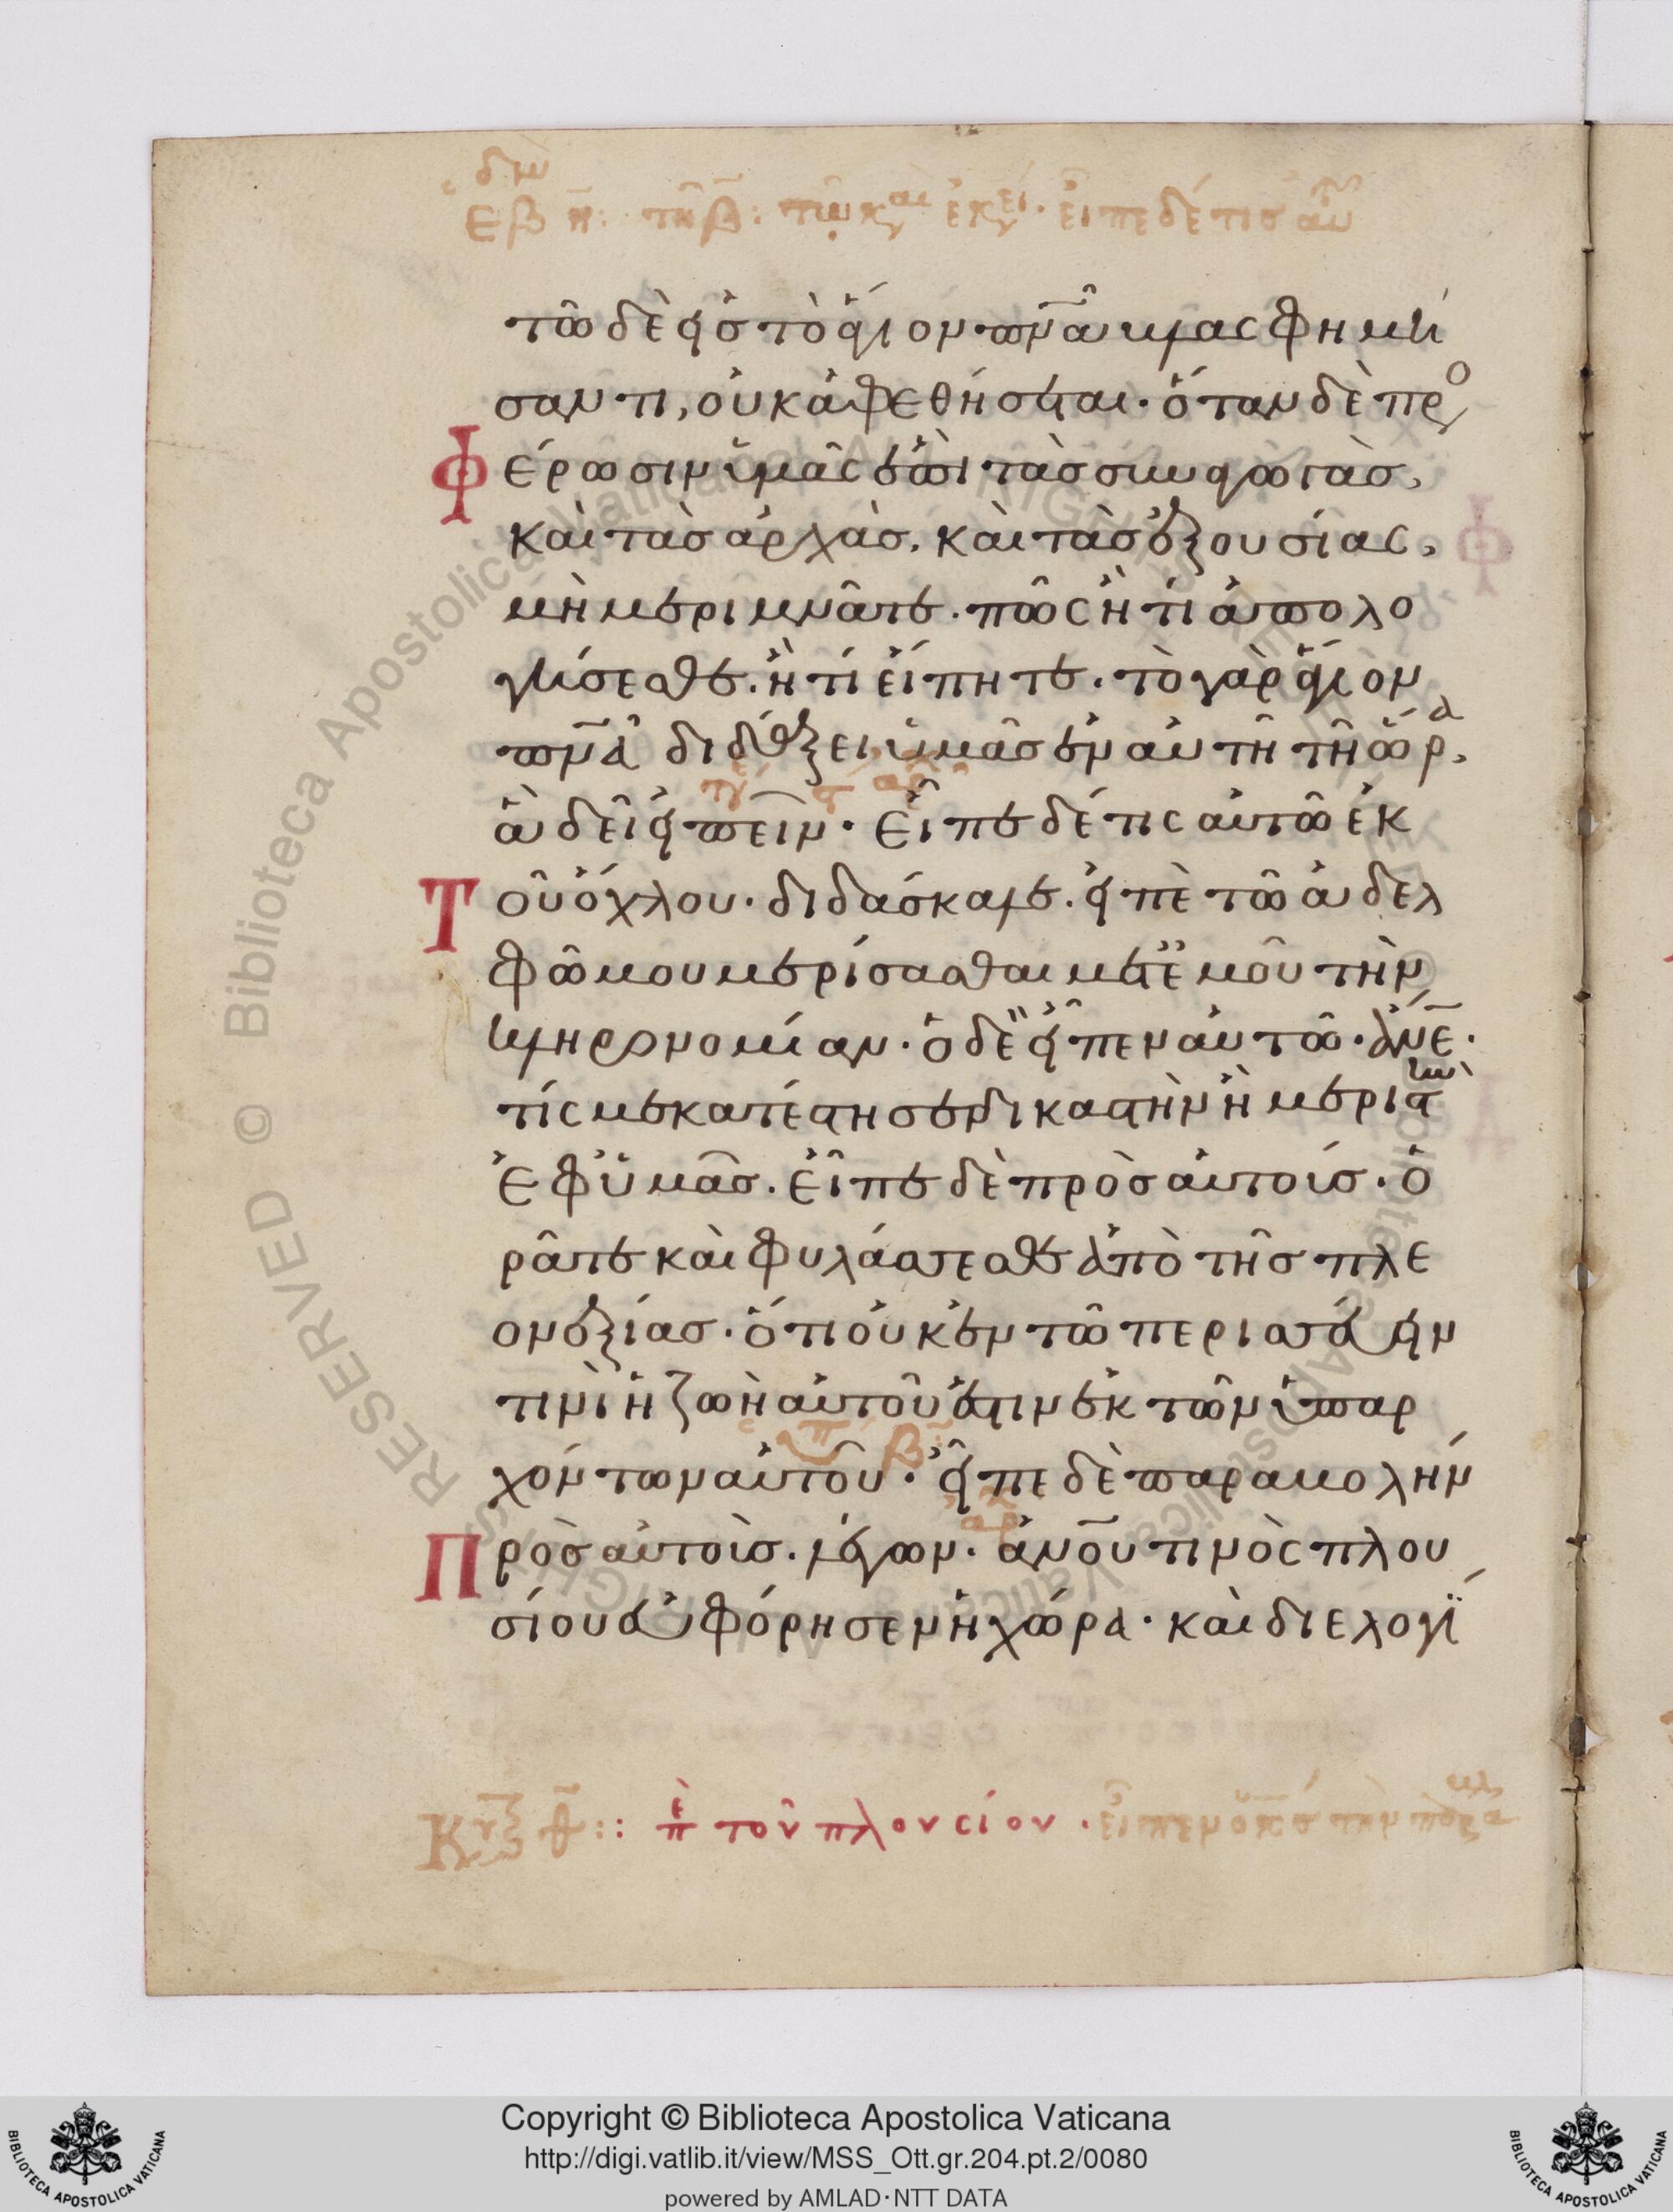 τῶ δὲ εἰς τὸ ἅγιον πνᾶ βλασφημή
σαντι, οὐκ ἀφεθήσεται· ὅταν δὲ προ
φέρωσιν ὑμᾶς ἐπὶ τὰς συναγωγὰς,
καὶ τὰς ἀρχὰς, καὶ τὰς ἐξουσίας,
μὴ μεριμνᾶτε· πῶς ἢ τί ἀπολο
γήσεσθε. ἢ τί εἴπητε· τὸ γὰρ ἅγιον
πνᾶ διδάξει ὑμᾶς ἐν αὐτῆ τῆ ὥρα,
ἃ δεῖ εἰπεῖν· Εἶπε δέ τις αὐτῶ ἐκ
τοῦ ὄχλου· διδάσκαλε. εἰπὲ τῶ ἀδελ
φῶ μου μερίσασθαι μετ' ἐμοῦ τὴν
κληρονομίαν· ὁ δὲ εἶπεν αὐτῶ· ἄνε·
τίς με κατέστησεν δικαστὴν ἢ μεριστὴν
ἐφ' ὑμᾶς. εἶπε δὲ πρὸς αὐτούς· ὁ
ρᾶτε καὶ φυλάσσεσθε ἀπὸ τῆς πλε
ονεξίας· ὅτι οὐκ ἐν τῶ περισσεύειν
τινὶ ἡ ζωὴ αὐτοῦ ἐστιν ἐκ τῶν ὑπαρ
χόντων αὐτοῦ· εἶπε δὲ παραβολὴν
πρὸς αὐτοὺς. λέγων· ἀνου τινὸς πλου
σίου εὐφόρησεν ἡ χώρα· καὶ διελογί
τοῦ πλουσίου· εἶπεν ὁ κς τὴν
Copyright © Biblioteca Apostolica Vaticana
http://digi.vatlib.it/view/MSS_Ott.gr.204.pt.2/0080
powered by AMLAD·NTT DATA
BIBLIOTECA APOSTOLICA VATICANA
BIBLIOTECA APOSTOLICA VATICANA